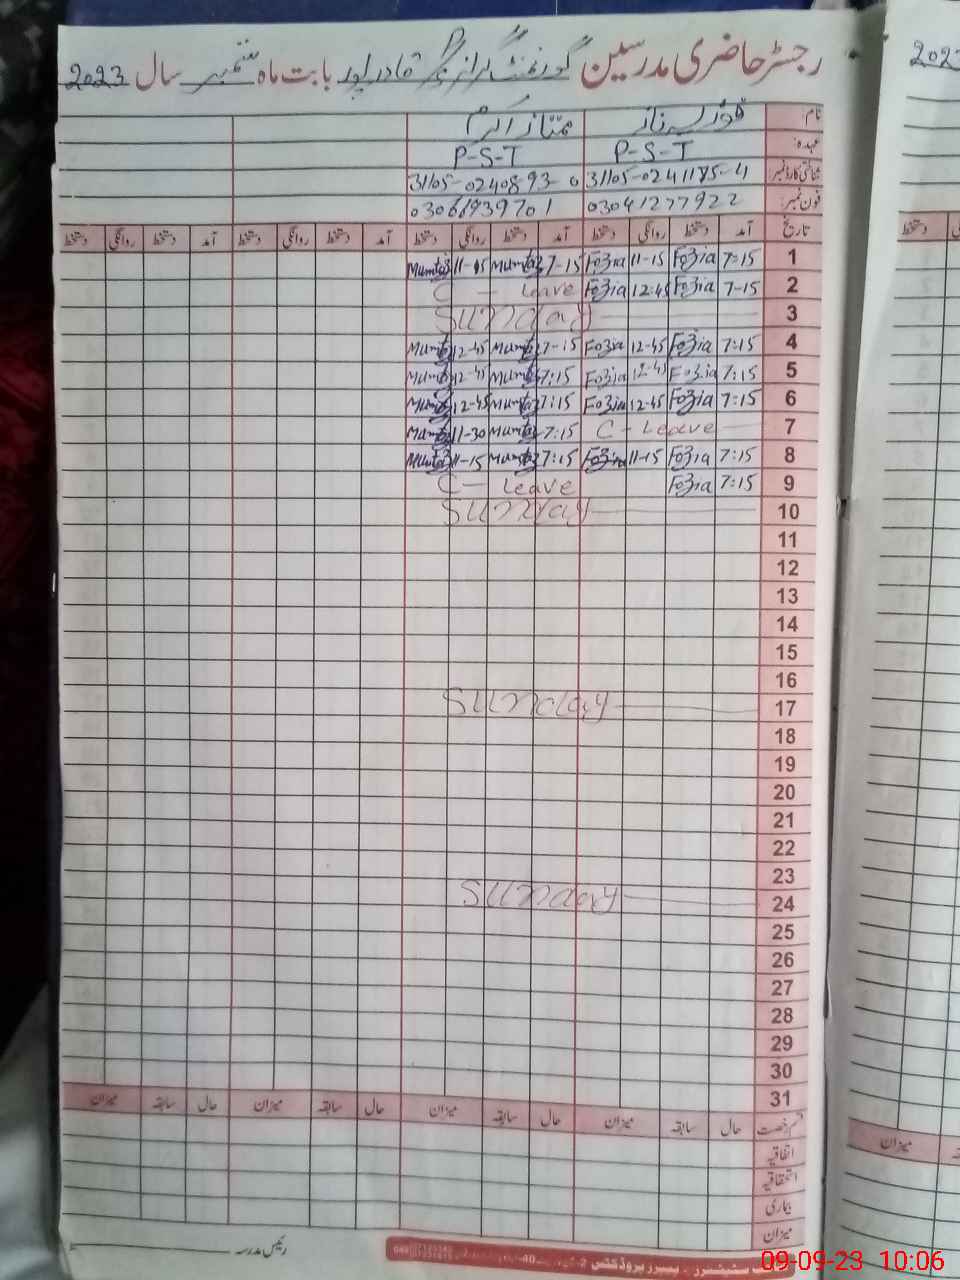 رجسٹر حاضری مدرسین گورنمنٹ گرلز پرائمری قادر پور بابت ماہ ستمبر سال 2023
نام: فوزیہ ناز ممتاز اکرم
عہدہ: P-S-T P-S-T
شناختی کارڈ نمبر 31105-0241185-4 31105-0240893-0
فون نمبر: 03041277922 03061939701
تاریخ آمد دستخط روانگی دستخط آمد دستخط روانگی دستخط آمد دستخط روانگی دستخط آمد دستخط روانگی دستخط
1 7:15 Fozia 11-15 Fozia 7-15 Mumtaz 11-15 Mumtaz
2 7-15 Fozia 12:45 Fozia C - Leave
3 Sunday
4 7:15 Fozia 12-45 Fozia 7-15 Mumtaz 12-45 Mumtaz
5 7:15 Fozia 12-45 Fozia 7:15 Mumtaz 12-45 Mumtaz
6 7:15 Fozia 12-45 Fozia 7:15 Mumtaz 12-45 Mumtaz
7 C - Leave 7:15 Mumtaz 11-30 Mumtaz
8 7:15 Fozia 11-15 Fozia 7:15 Mumtaz 11-15 Mumtaz
9 7:15 Fozia C - Leave
10 Sunday
11
12
13
14
15
16
17 Sunday
18
19
20
21
22
23
24 Sunday
25
26
27
28
29
30
31
قسم رخصت حال سابقہ میزان حال سابقہ میزان حال سابقہ میزان حال سابقہ میزان
اتفاقیہ
استحقاقیہ
بیماری
میزان
رئیس مدرسہ
سٹیشنرز پیپر پروڈکٹس
09-09-23 10:06
2023
دستخط
میزان